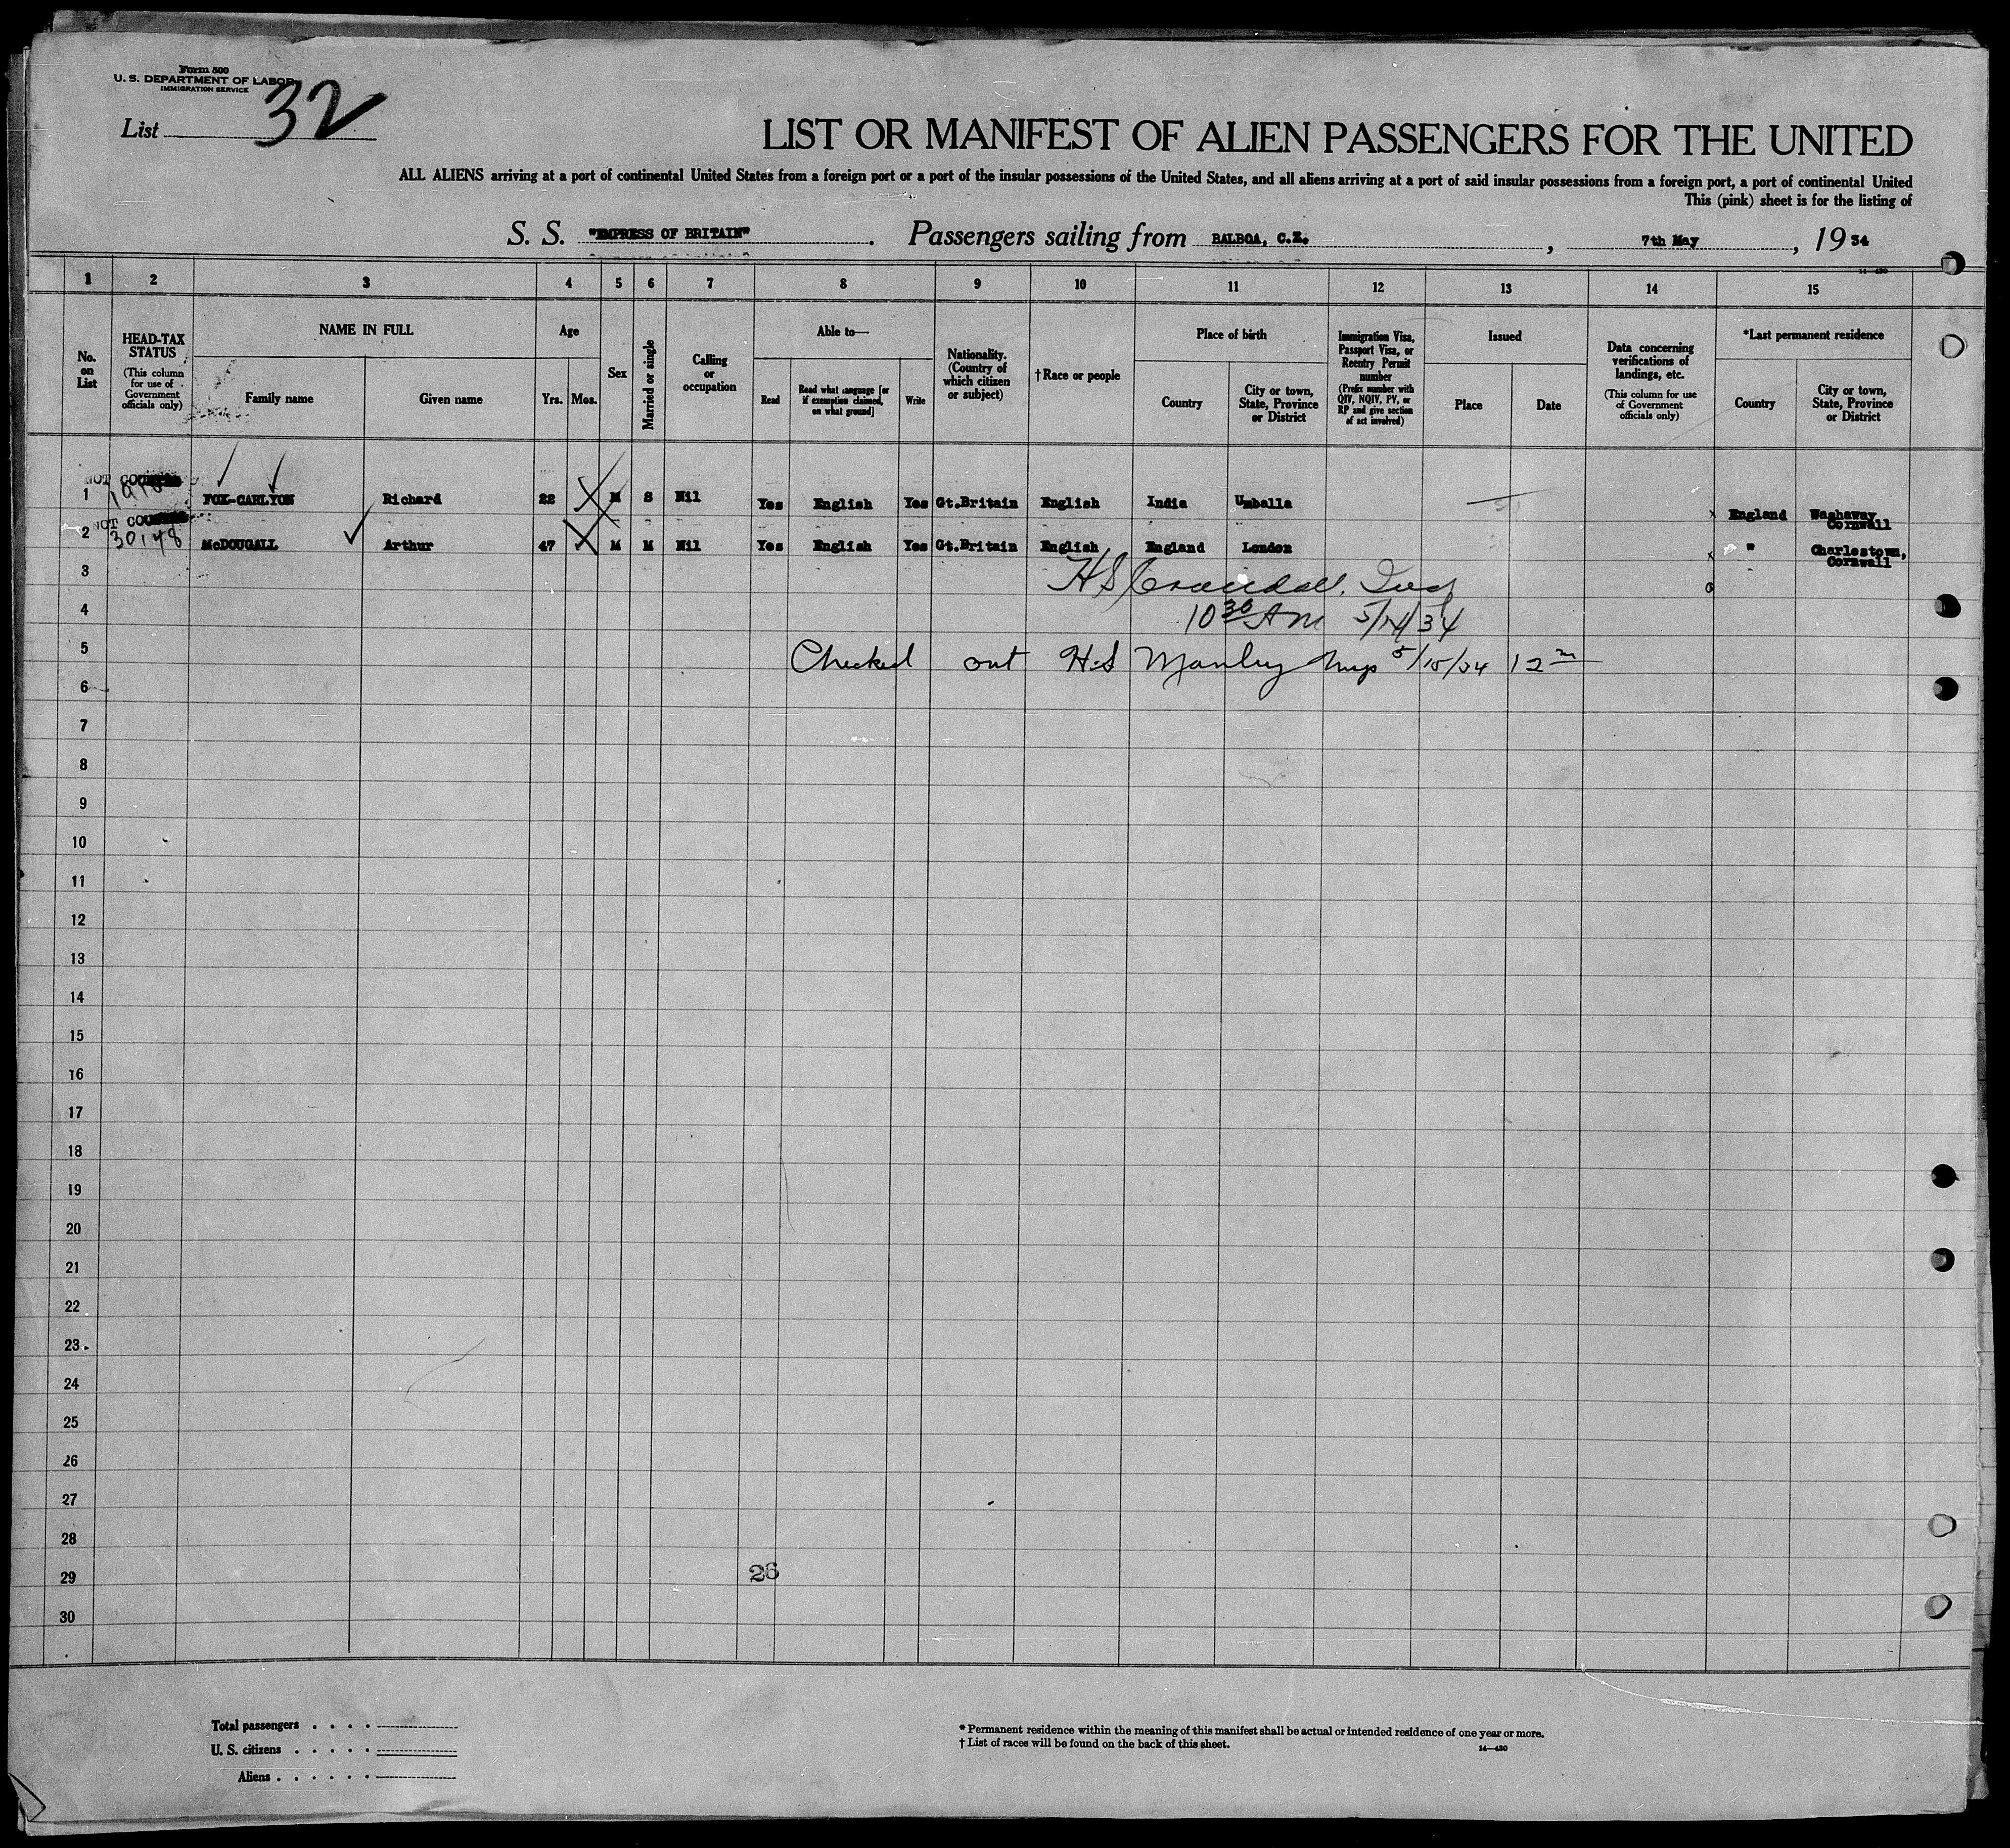 Form 500
U. S. DEPARTMENT OF LABOR
IMMIGRATION SERVICE
List 32
LIST OR MANIFEST OF ALIEN PASSENGERS FOR THE UNITED
ALL ALIENS arriving at a port of continental United States from a foreign port or a port of the insular possessions of the United States, and all aliens arriving at a port of said insular possessions from a foreign port, a port of continental United
This (pink) sheet is for the listing of
S. S. "EMPRESS OF BRITAIN". Passengers sailing from BALBOA, C.Z., 7th May, 1934
14—430
1 2 3 4 5 6 7 8 9 10 11 12 13 14 15
No. on List
HEAD-TAX STATUS
(This column for use of Government officials only)
NAME IN FULL
Family name
Given name
Age
Yrs.
Mos.
Sex
Married or single
Calling or occupation
Able to—
Read
Read what language [or if exemption claimed, on what ground]
Write
Nationality. (Country of which citizen or subject)
†Race or people
Place of birth
Country
City or town, State, Province or District
Immigration Visa, Passport Visa, or Reentry Permit number
(Prefix number with QIV, NQIV, PV, or RP and give section of act involved)
Issued
Place
Date
Data concerning verifications of landings, etc.
(This column for use of Government officials only)
*Last permanent residence
Country
City or town, State, Province or District
NOT
1 FOX-CARLYON Richard 22 M S Nil Yes English Yes Gt.Britain English India Umballa England Washaway Cornwall
NOT
2 30148 McDOUGALL Arthur 47 M M Nil Yes English Yes Gt.Britain English England London " Charlestown, Cornwall
3 H S Crandall
4 10 30 AM 5/14/34
5 Checked out H.S Manley 5/15/34 12 m
6
7
8
9
10
11
12
13
14
15
16
17
18
19
20
21
22
23
24
25
26
27
28
29 26
30
Total passengers . . . .
U. S. citizens . . . . .
Aliens . . . . . .
* Permanent residence within the meaning of this manifest shall be actual or intended residence of one year or more.
† List of races will be found on the back of this sheet.
14—430